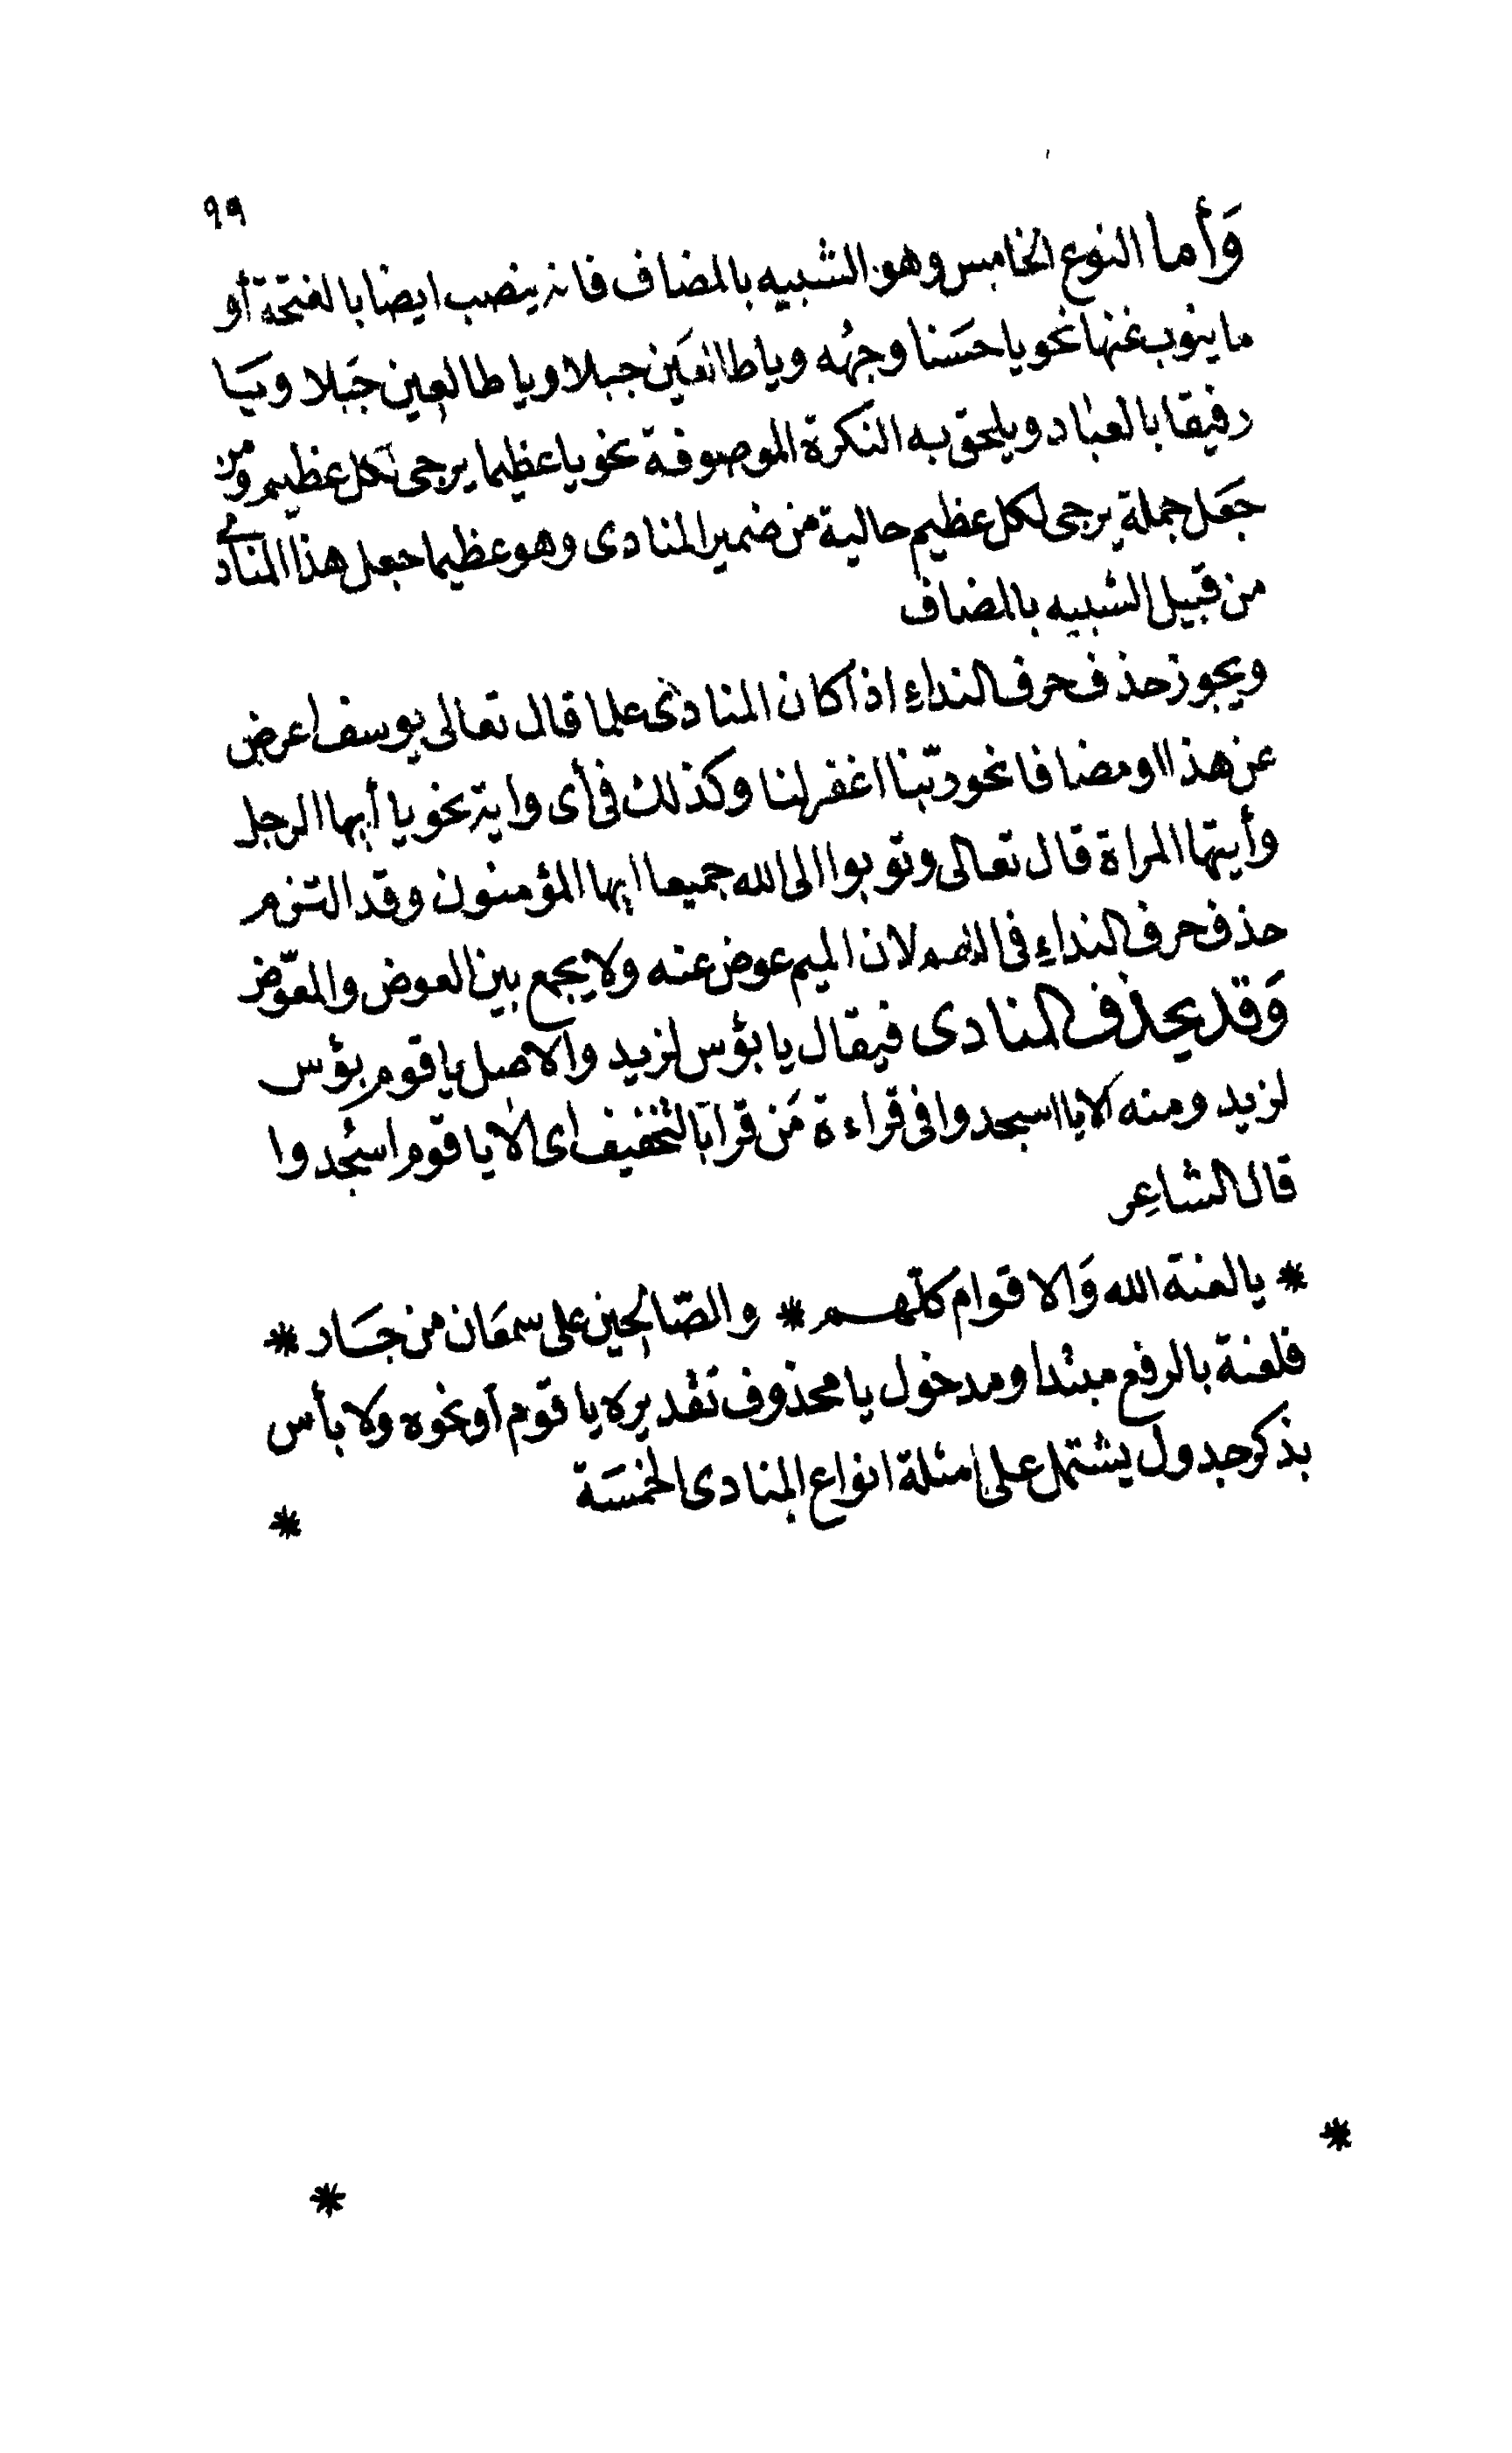 ٩٩
وَأما النوع الخامس وهو الشبيه بالمضاف فانه ينصب ايضا بالفتحة أو
ما ينوب عنها نحو يا حَسَنا وجهُه ويا طالعَين جبلا ويا طالعِين جَبَلا ويَا
رفيقا بالعباد ويلحق به النكرة الموصوفة نحو يا عظيما يرجى لكل عظيم ومن
جَعَل جملة يرجى لكل عظيم حالية من ضمير المنادى وهو عظيما جعل هذا المنادى
من قبيل الشبيه بالمضاف
ويجوز حذف حرف النداءِ اذا كان المنادى علما قال تعالى يوسف اعرض
عن هذا او مضافا نحو ربّنا اغفر لنا وكذلك في أى واية نحو يا أيها الرجل
وأيتها المراة قال تعالى وتوبوا الى الله جميعا ايها المؤمنون وقد التزم
حذف حرف النداءِ فى اللهم لان الميم عوض عنه ولا يجمع بين العوض والمعوّض
وَقد يحذف المنادى فيقال يا بؤس لزيد والاصل يا قوم بؤس
لزيد ومنه الا يا اسجدوا فى قراءة مَن قرا بالتخفيف اى الا يا قوم اسجُدوا
قال الشاعِر
* يا لعنة الله وَالاقوام كلّهم * والصّالحين على سمعَان من جَار *
فلعنة بالرفع مبتدا ومدخول يا محذوف تقديره يا قوم أو نحوه ولا بأس
بذكر جدول يشتمل على امثلة انواع المنادى الخمسَة
*
*
*